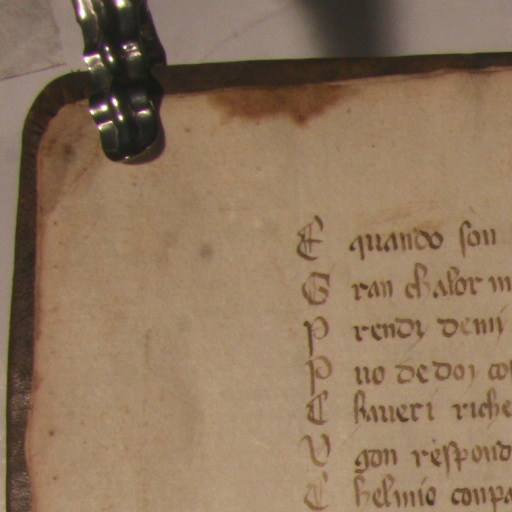 E quando son
G ran chalor m
P rendi demi
P uo de doi co
C haueri riche
V gon respond
C helmio conpa